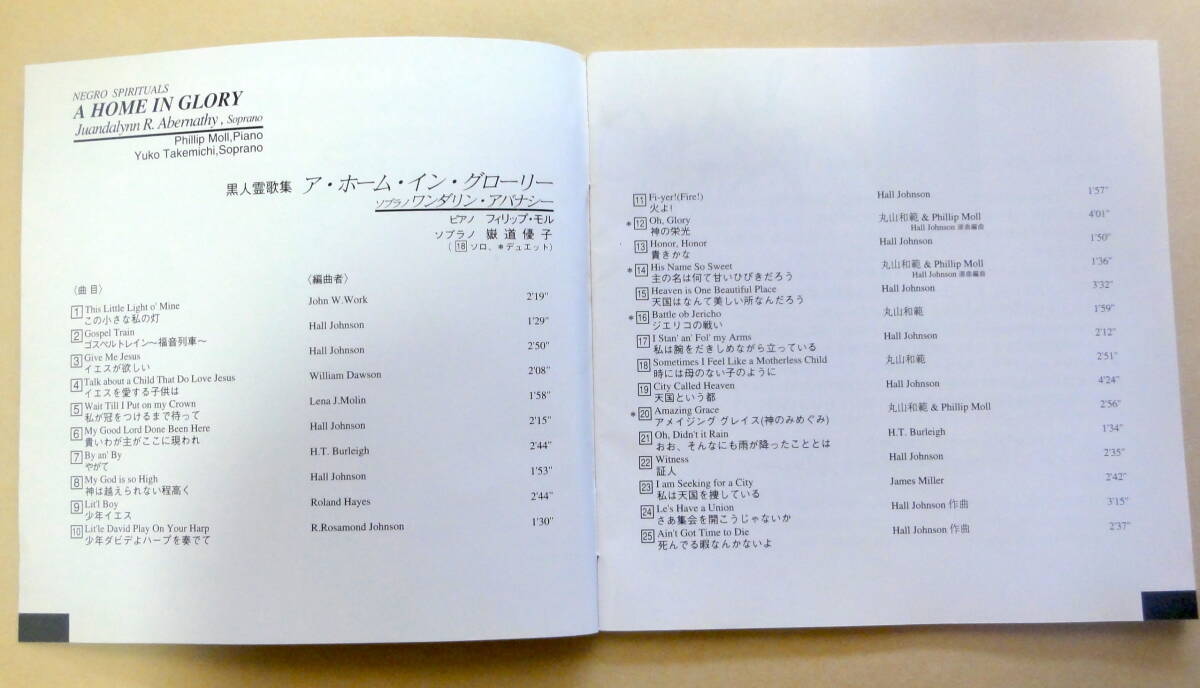 NEGRO SPIRITUALS
A HOME IN GLORY
Juandalynn R. Abernathy, Soprano
Phillip Moll,Piano
Yuko Takemichi,Soprano
黒人霊歌集 ア・ホーム・イン・グローリー
ソプラノ ワンダリン・アバナシー
ピアノ フィリップ・モル
ソプラノ 嶽道優子
(18 ソロ、*デュエット)
〈曲目〉 〈編曲者〉
1 This Little Light o' Mine John W.Work 2'19"
この小さな私の灯
2 Gospel Train Hall Johnson 1'29"
ゴスペルトレイン〜福音列車〜
3 Give Me Jesus Hall Johnson 2'50"
イエスが欲しい
4 Talk about a Child That Do Love Jesus William Dawson 2'08"
イエスを愛する子供は
5 Wait Till I Put on my Crown Lena J.Molin 1'58"
私が冠をつけるまで待って
6 My Good Lord Done Been Here Hall Johnson 2'15"
貴いわが主がここに現われ
7 By an' By H.T. Burleigh 2'44"
やがて
8 My God is so High Hall Johnson 1'53"
神は越えられない程高く
9 Lit'l Boy Roland Hayes 2'44"
少年イエス
10 Lit'le David Play On Your Harp R.Rosamond Johnson 1'30"
少年ダビデよハープを奏でて
11 Fi-yer!(Fire!) Hall Johnson 1'57"
火よ!
*12 Oh, Glory 丸山和範 & Phillip Moll 4'01"
神の栄光 Hall Johnson 原曲編曲
13 Honor, Honor Hall Johnson 1'50"
貴きかな
*14 His Name So Sweet 丸山和範 & Phillip Moll 1'36"
主の名は何て甘いひびきだろう Hall Johnson 原曲編曲
15 Heaven is One Beautiful Place Hall Johnson 3'32"
天国はなんて美しい所なんだろう
*16 Battle ob Jericho 丸山和範 1'59"
ジエリコの戦い
17 I Stan' an' Fol' my Arms Hall Johnson 2'12"
私は腕をだきしめながら立っている
18 Sometimes I Feel Like a Motherless Child 丸山和範 2'51"
時には母のない子のように
19 City Called Heaven Hall Johnson 4'24"
天国という都
*20 Amazing Grace 丸山和範 & Phillip Moll 2'56"
アメイジング グレイス(神のみめぐみ)
21 Oh, Didn't it Rain H.T. Burleigh 1'34"
おお、そんなにも雨が降ったこととは
22 Witness Hall Johnson 2'35"
証人
23 I am Seeking for a City James Miller 2'42"
私は天国を捜している
24 Le's Have a Union Hall Johnson 作曲 3'15"
さあ集会を開こうじゃないか
25 Ain't Got Time to Die Hall Johnson 作曲 2'37"
死んでる暇なんかないよ